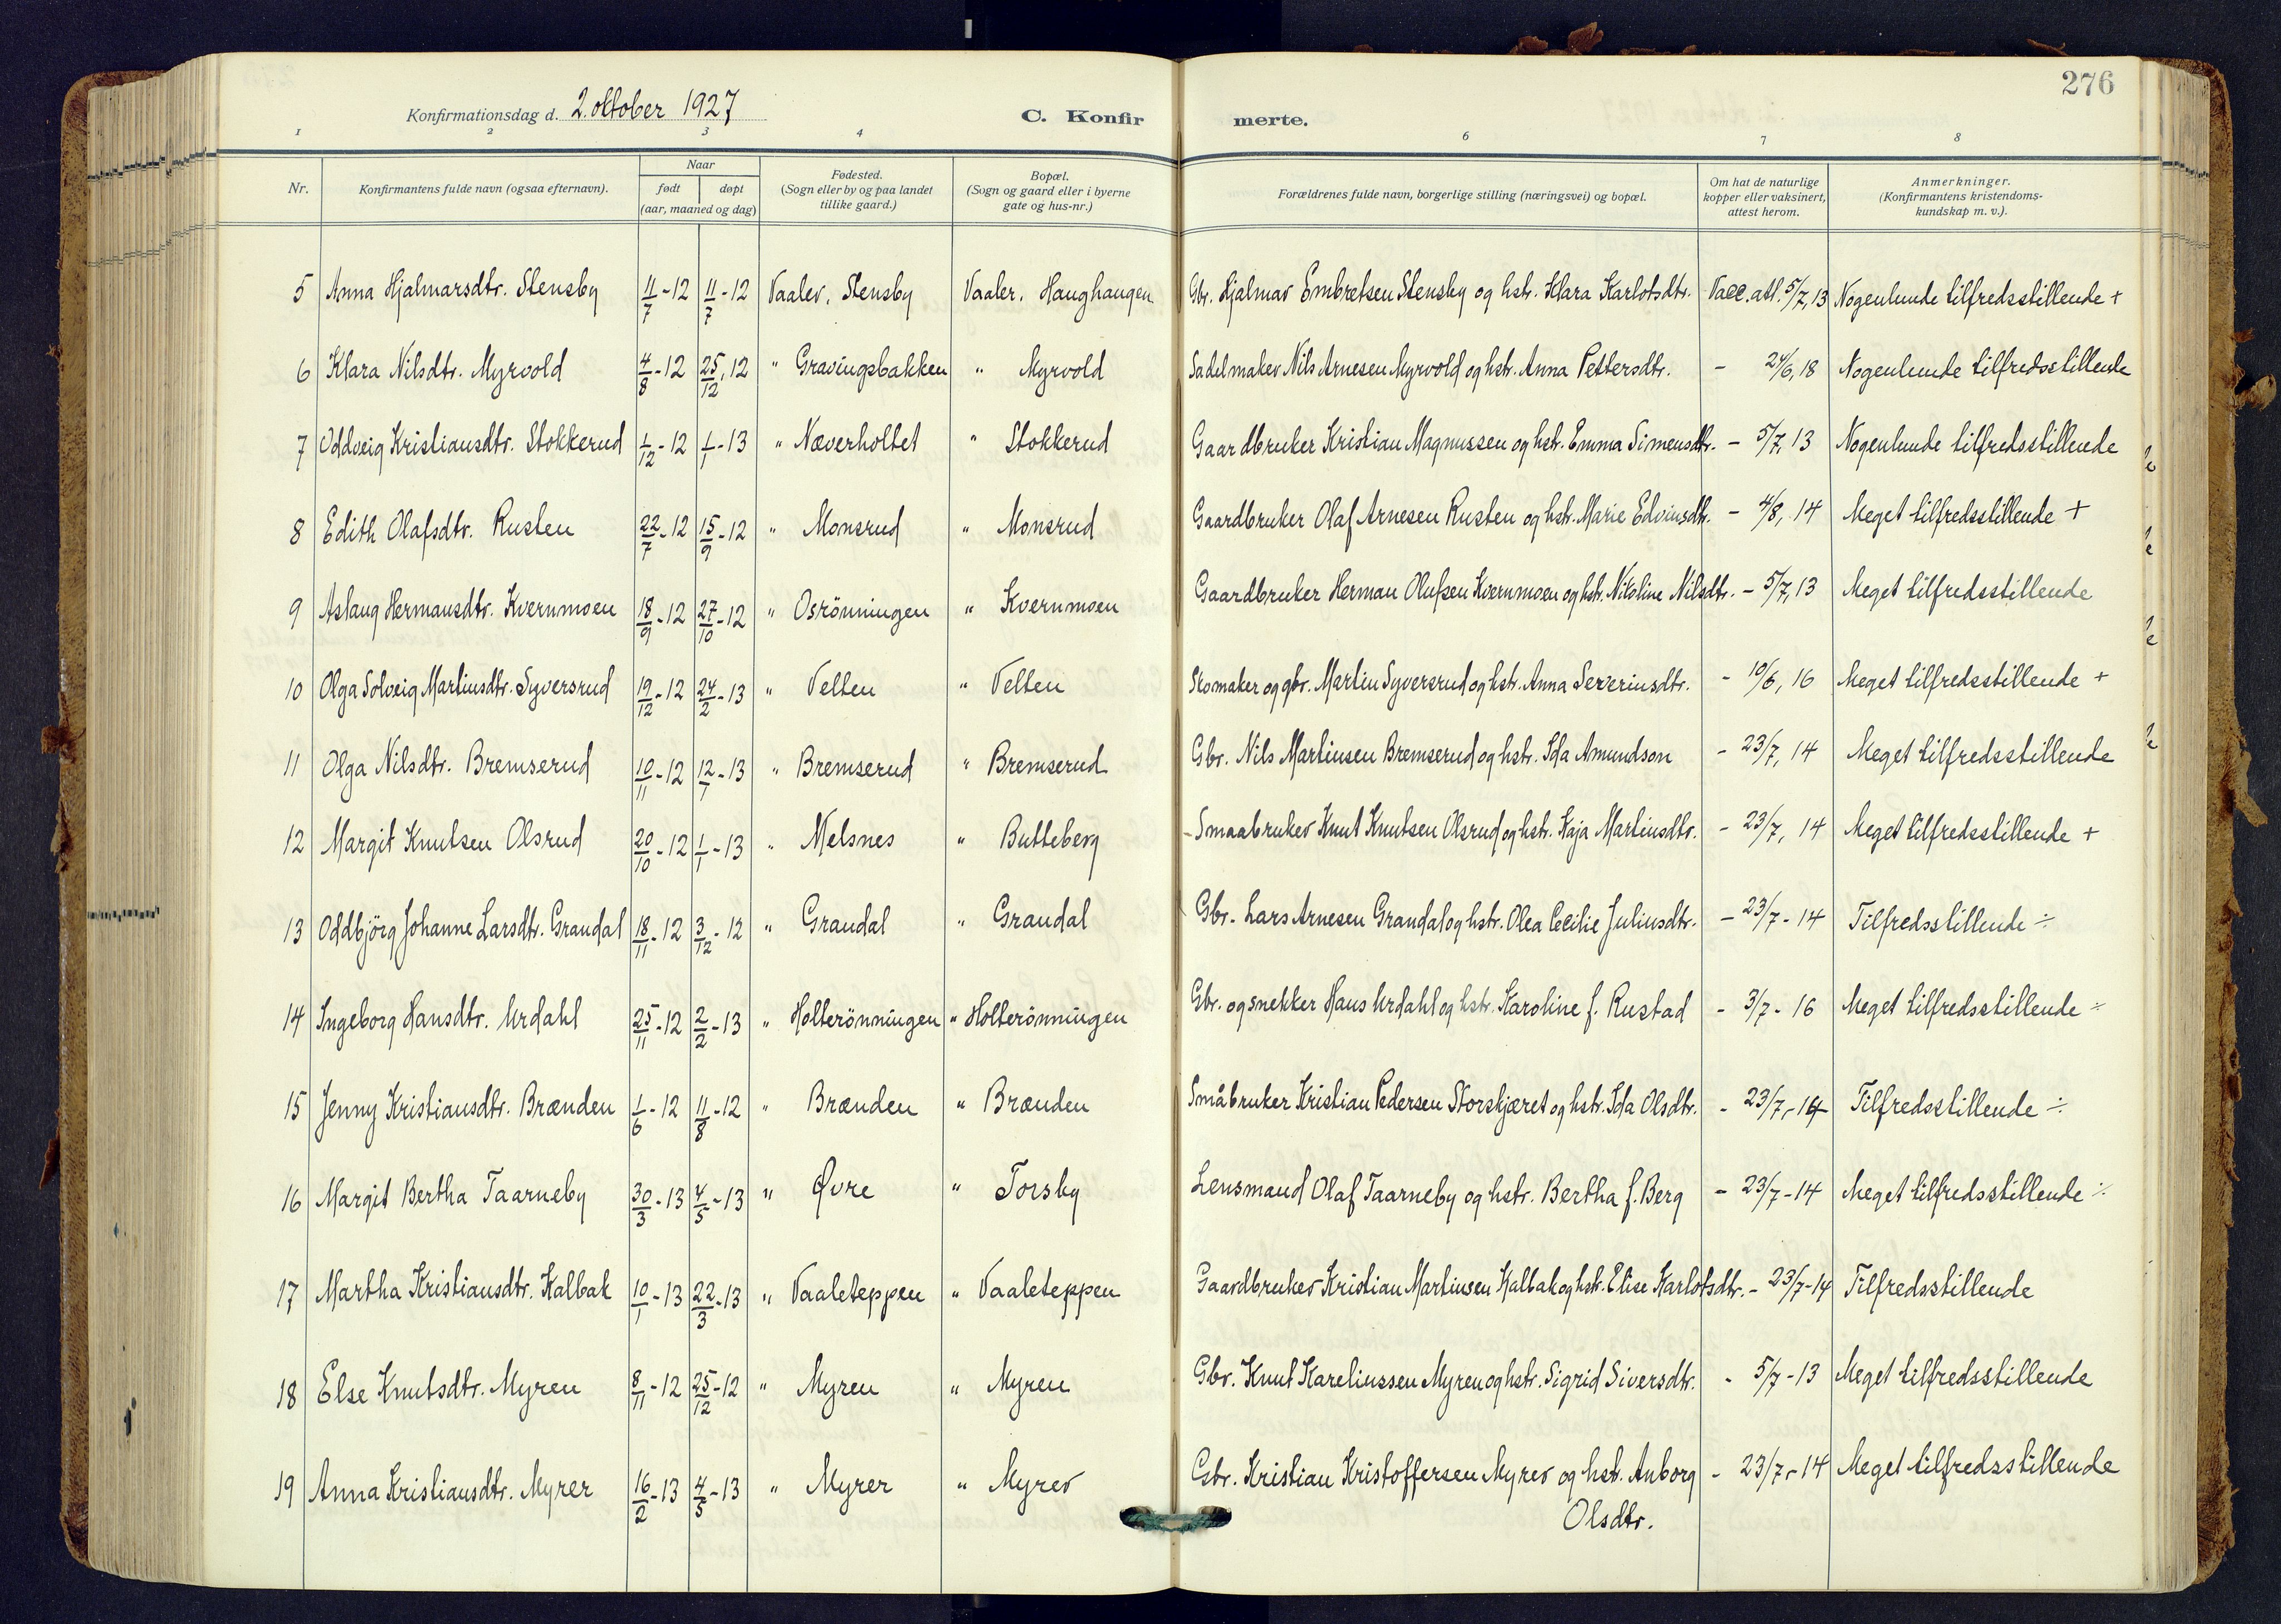 276
Konfirmationsdag d. 2. oktober 1927
C. Konfirmerte.
1 2 3 4 6 7 8
Nr. | Konfirmantens fulde navn (ogsaa efternavn). | Naar født døpt (aar, maaned og dag) | Fødested. (Sogn eller by og paa landet tillike gaard.) | Bopæl. (Sogn og gaard eller i byerne gate og hus-nr.) | Forældrenes fulde navn, borgerlige stilling (næringsvei) og bopæl. | Om hat de naturlige kopper eller vaksinert, attest herom. | Anmerkninger. (Konfirmantens kristendoms-kundskap m. v.).
5 Anna Hjalmarsdtr. Stensby 11/7-12 11/7-12 Vaaler, Stensby Vaaler, Haughaugen Gbr. Hjalmar Embretsen Stensby og hstr. Klara Karlotsdtr. Vacc. att. 5/7, 13 Nogenlunde tilfredsstillende +
6 Klara Nilsdtr. Myrvold 4/8-12 25/12, 12 " Gravingsbakken " Myrvold Sadelmaker Nils Arnesen Myrvold og hstr. Anna Pettersdtr. - 24/6, 18 Nogenlunde tilfredsstillende
7 Oddveig Kristiansdtr. Stokkerud 1/12-12 1/1-13 " Næverholtet " Stokkerud Gaardbruker Kristian Magnussen og hstr. Emma Simensdtr. - 5/7, 13 Nogenlunde tilfredsstillende
8 Edith Olafsdtr. Rusten 22/7-12 15/9-12 " Monsrud " Monsrud Gaardbruker Olaf Arnesen Rusten og hstr. Marie Edvinsdtr. - 4/8, 14 Meget tilfredsstillende +
9 Aslaug Hermansdtr. Kvernmoen 18/9-12 27/10-12 " Osrönningen " Kvernmoen Gaardbruker Herman Olufsen Kvernmoen og hstr. Nikoline Nilsdtr. - 5/7, 13 Meget tilfredsstillende
10 Olga Solveig Martinsdtr. Syversrud 19/12-12 24/2-13 " Velten " Velten Skomaker og gbr. Martin Syversrud og hstr. Anna Severinsdtr. - 10/6, 16 Meget tilfredsstillende +
11 Olga Nilsdtr. Bremserud 10/11-12 12/1-13 " Bremserud " Bremserud Gbr. Nils Martinsen Bremserud og hstr. Ida Amundson - 23/7, 14 Meget tilfredsstillende
12 Margit Knutsen Olsrud 20/10-12 1/1-13 " Melsnes " Butteberg Smaabruker Knut Knutsen Olsrud og hstr. Kaja Martinsdtr. - 23/7, 14 Meget tilfredsstillende +
13 Oddbjörg Johanne Larsdtr. Grandal 18/11-12 3/12-12 " Grandal " Grandal Gbr. Lars Arnesen Grandal og hstr. Olea Cecilie Juliusdtr. - 23/7-14 Tilfredsstillende ÷
14 Ingeborg Hansdtr. Urdahl 25/11-12 2/2-13 " Holterönningen " Holterönningen Gbr. og snekker Hans Urdahl og hstr. Karoline f. Rustad - 3/7-16 Meget tilfredsstillende ÷
15 Jenny Kristiansdtr. Brænden 1/6-12 11/8-12 " Brænden " Brænden Småbruker Kristian Pedersen Storskjæret og hstr. Ida Olsdtr. - 23/7-14 Tilfredsstillende ÷
16 Margit Bertha Taarneby 30/3-13 4/5-13 " Øvre " Torsby Lensmand Olaf Taarneby og hstr. Bertha f. Berg - 23/7-14 Meget tilfredsstillende ÷
17 Martha Kristiansdtr. Kalbak 10/1-13 22/3-13 " Vaaleteppen " Vaaleteppen Gaardbruker Kristian Martinsen Kalbak og hstr. Elise Karlotsdtr. - 23/7-14 Tilfredsstillende
18 Else Knutsdtr. Myren 8/11-12 25/12-12 " Myren " Myren Gbr. Knut Kareliussen Myren og hstr. Sigrid Siversdtr. - 5/7-13 Meget tilfredsstillende
19 Anna Kristiansdtr. Myrer 16/2-13 4/5-13 " Myrer " Myrer Gbr. Kristian Kristoffersen Myrer og hst. Anborg Olsdtr. - 23/7-14 Meget tilfredsstillende